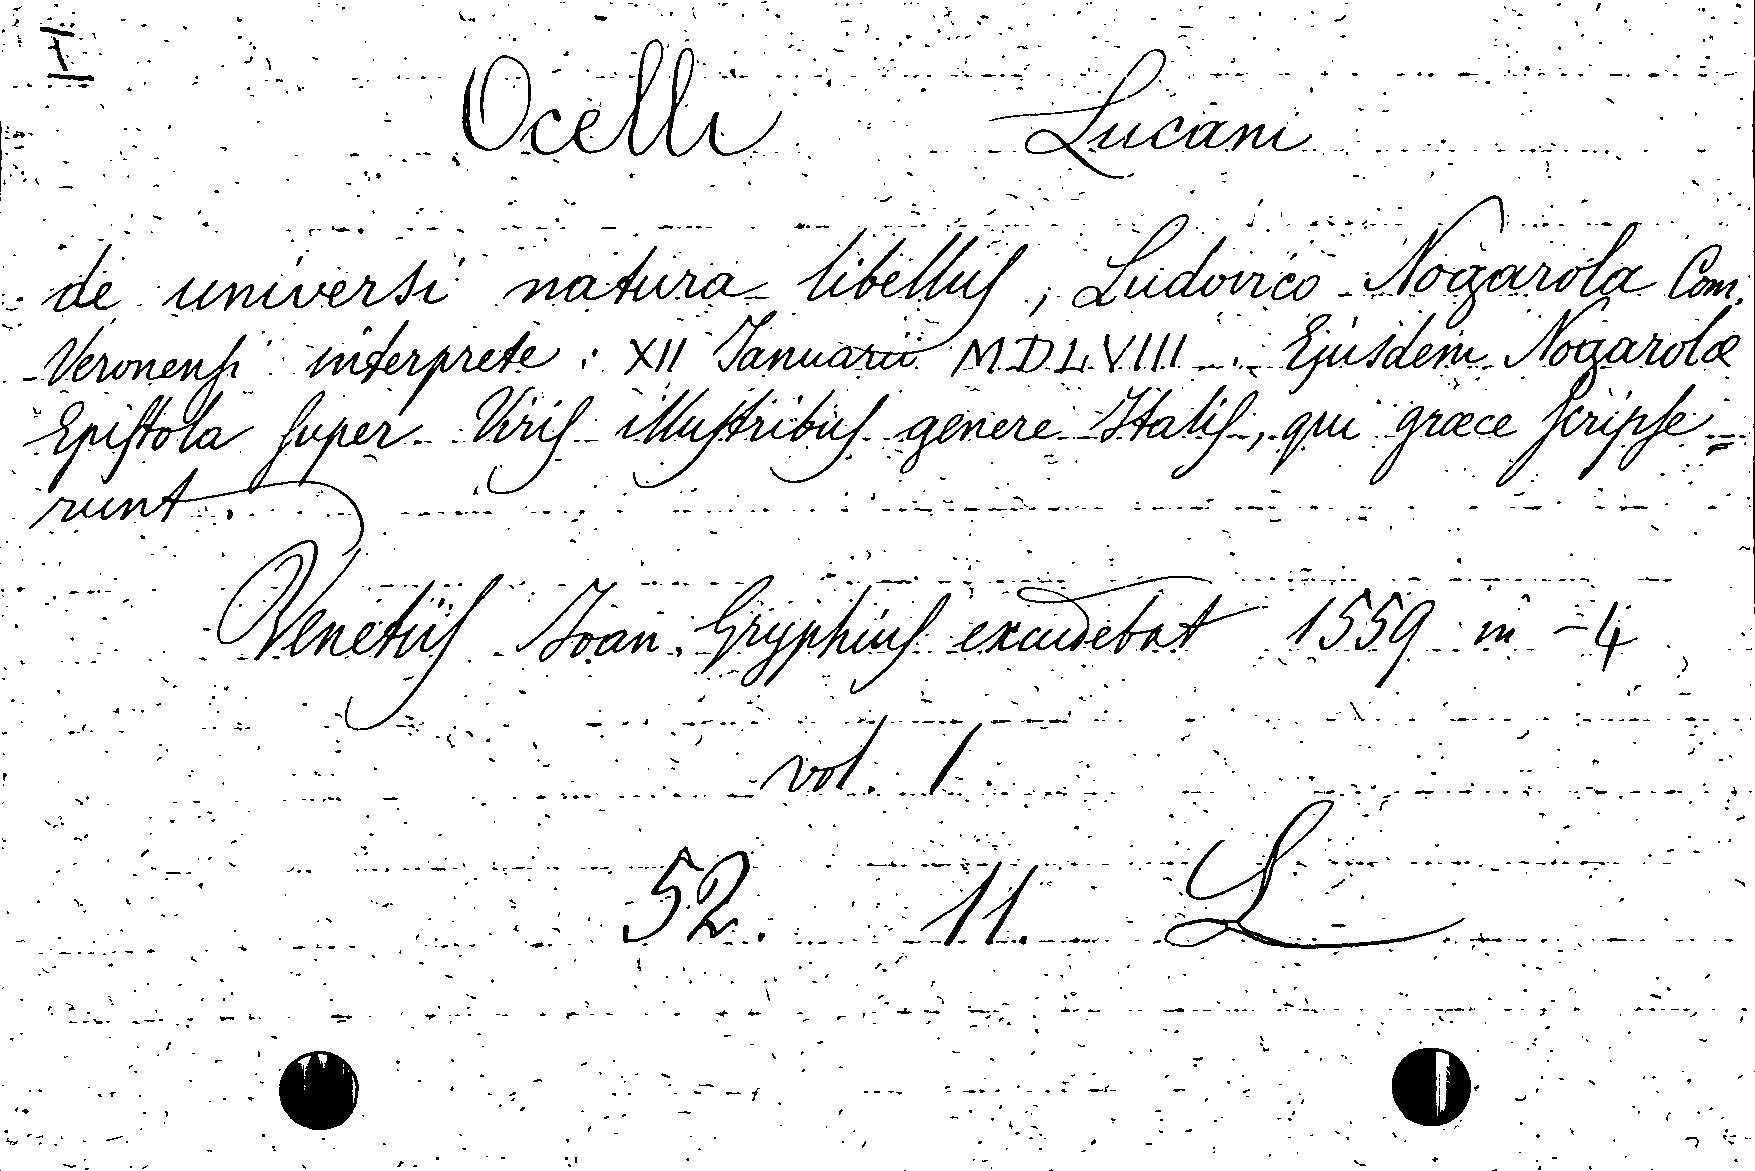 I
Ocelli Lucani
de universi natura libellus, Ludovico Nogarola Com.
Veronensi interprete: XII Januarii MDLVIII. Ejusdem Nogarolæ
Epistola super Viris illustribus genere Italis, qui græce scripse=
runt.
Venetiis Ioan. Gryphius excudebat 1559 in -4
vol. 1.
52. 11. L